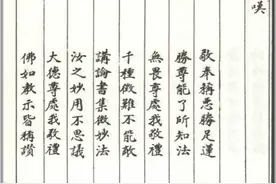 嘆
敬奉稱悉勝足蓮
勝尊能了所知法
無畏尊處我敬禮
千種微難不能敵
講論書集微妙法
汝之妙用不思議
大德尊處我敬禮
佛如教示皆稱讚